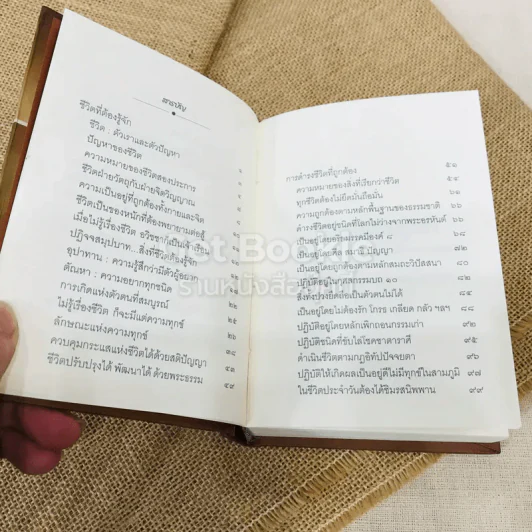 สารบัญ
ชีวิตที่ต้องรู้จัก
ชีวิต : ตัวเราและตัวปัญหา
ปัญหาของชีวิต
ความหมายของชีวิตสองประการ
ชีวิตฝ่ายวัตถุกับฝ่ายจิตวิญญาณ
ความเป็นอยู่ที่ถูกต้องทั้งกายและจิต
ชีวิตเป็นของหนักที่ต้องพยายามต่อสู้
เมื่อไม่รู้เรื่องชีวิต อวิชชา
ปฏิจจสมุปบาท...สิ่งที่ชีวิตต้องรู้จัก
อุปาทาน : ความรู้สึกว่ามีตัวผู้
ตัณหา : ความอยากทุกชนิด
การเกิดแห่งตัวตนที่สมบูรณ์
ไม่รู้เรื่องชีวิต ก็จะมีแต่ความทุกข์ ๒๘
ลักษณะแห่งความทุกข์
ควบคุมกระแสแห่งชีวิตได้ด้วยสติปัญญา ๓๘
ชีวิตปรับปรุงได้ พัฒนาได้ ด้วยพระธรรม ๔๙
การดำรงชีวิตที่ถูกต้อง ๕๑
ความหมายของสิ่งที่เรียกว่าชีวิต
ทุกชีวิตต้องไม่ยึดมั่นถือมั่น
ความถูกต้องตามหลักพื้นฐานของธรรมชาติ
ดำรงชีวิตอยู่ชนิดที่โลกไม่ว่างจากพระอรหันต์ ๖๖
เป็นอยู่โดย มรรคมีองค์ ๘
เป็นอยู่โดย ปัญญา ๗๒
เป็นอยู่โดยถูกต้องตามหลักสมถะวิปัสสนา
ปฏิบัติอยู่ใน กุศลกรรมบถ ๑๐
สิ่งทั้งปวงยึดถือเป็นตัวตนไม่ได้ ๘๔
เป็นอยู่โดยไม่ต้องรัก โกรธ เกลียด กลัว ฯลฯ ๘๕
ปฏิบัติอยู่โดยหลักเพิกถอนกรรมเก่า
ปฏิบัติชนิดที่ขับไล่โชคชะตาราศี
ดำเนินชีวิตตามกฎอิทัปปัจจยตา ๙๖
ปฏิบัติให้เกิดผลเป็นอยู่ดีไม่มีทุกข์ในสามภูมิ ๙๗
ในชีวิตประจำวันต้องได้ชิมรสนิพพาน ๙๙
ร้านหนังสือ